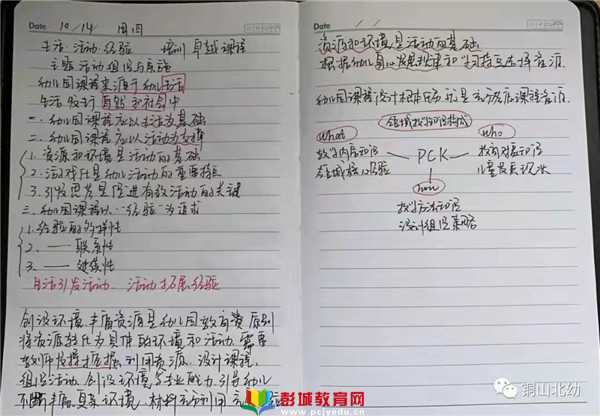 Date 10/14 周四
生活·活动·经验 培训 卓越课程
主题活动组织与实施
幼儿园课程来源于幼儿生活
生活教育 自然和社会中
一、幼儿园课程应以生活为基础
二、幼儿园课程应以活动为支撑
1.资源和环境是活动的基础
2.游戏化是幼儿活动的重要特征
3.引发思考是促进有效活动的关键
三、幼儿园课程以“经验”为追求
1.经验的多样性
2.—— 联系性
3.—— 连续性
生活引发活动、活动拓展经验
创设环境、丰富资源是幼儿园教育原则
将资源转化为具体的环境和活动,需要
教师发现挖掘利用资源、设计课程、
组织活动、创设环境等专业能力,引导幼儿
不断丰富真实环境、材料充分利用
Date
资源和环境是活动的基础
根据幼儿身心发展规律和学习特点选择资源
幼儿园课程设计根本所在就是充分发展课程资源
领域教学知识构成
what
who
教学内容知识
PCK
教育对象知识
领域核心经验
儿童发展状况
how
教学方法知识
设计组织策略
彭城教育网
www.pcjyedu.cn
铜山北幼